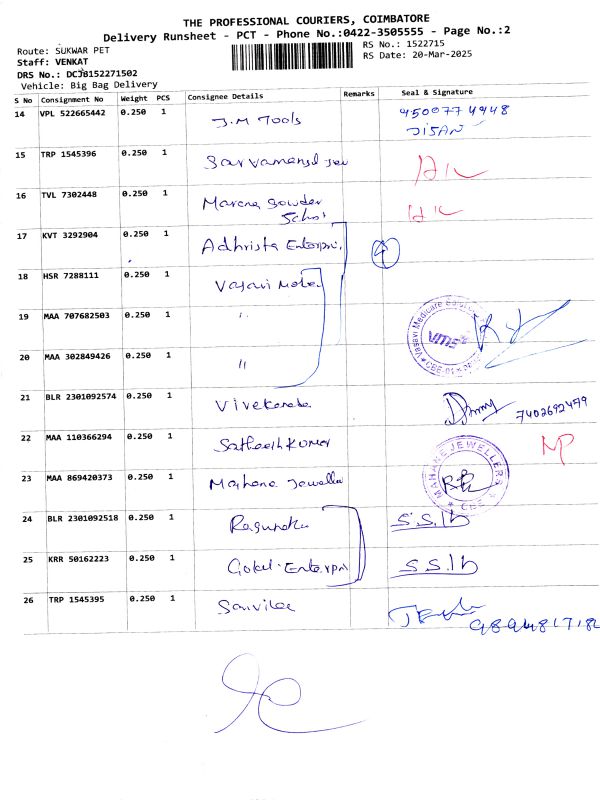 THE PROFESSIONAL COURIERS, COIMBATORE
Delivery Runsheet - PCT - Phone No.:0422-3505555 - Page No.:2
Route: SUKWAR PET
RS No.: 1522715
Staff: VENKAT
RS Date: 20-Mar-2025
DRS No.: DCJ8152271502
Vehicle: Big Bag Delivery
S No Consignment No Weight PCS Consignee Details Remarks Seal & Signature
14 VPL 522665442 0.250 1 J.M Tools 9500774948
JISAN
15 TRP 1545396 0.250 1
16 TVL 7302448 0.250 1
17 KVT 3292904 0.250 1 Adhrista Enterpri.
18 HSR 7288111 0.250 1 Vasavi
19 MAA 707682503 0.250 1 "
Vasavi Medicare
VMS
CBE-01
20 MAA 302849426 0.250 1 "
21 BLR 2301092574 0.250 1 Vivekanada 7402692479
22 MAA 110366294 0.250 1 Satheesh Kumar NP
23 MAA 869420373 0.250 1 Mahane Jewelle
MAHANE JEWELLERS
CBE
24 BLR 2301092518 0.250 1 S.S.Ib
25 KRR 50162223 0.250 1 Gokul Enterpri S.S.Ib
26 TRP 1545395 0.250 1